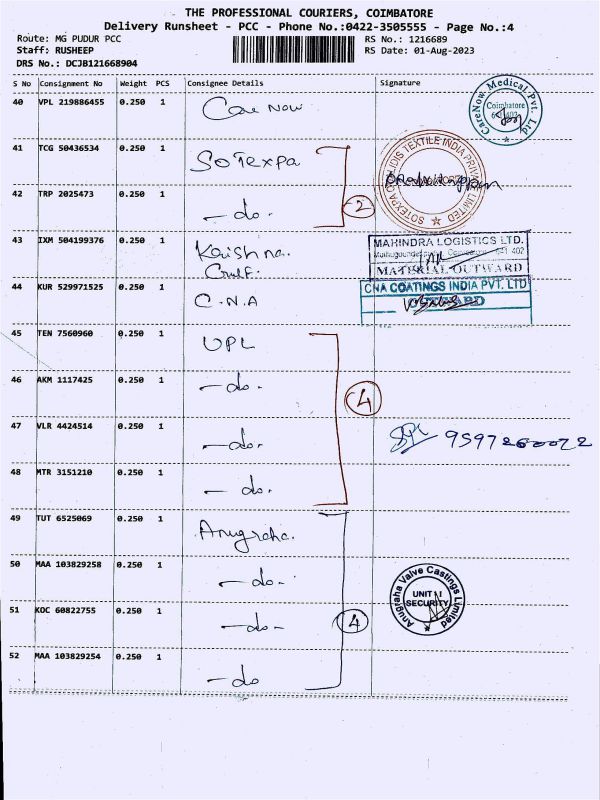 THE PROFESSIONAL COURIERS, COIMBATORE
Delivery Runsheet - PCC - Phone No.:0422-3505555 - Page No.:4
Route: MG PUDUR PCC
RS No.: 1216689
Staff: RUSHEEP
RS Date: 01-Aug-2023
DRS No.: DCJB121668904
S No Consignment No Weight PCS Consignee Details Signature
40 VPL 219886455 0.250 1 Care Now
CareNow Medical Pvt. Ltd
Coimbatore
41 TCG 50436534 0.250 1 SOTEXPA
SOTEXPA QUALIDIS TEXTILE INDIA PRIVATE LIMITED
42 TRP 2025473 0.250 1 - do. 2
43 IXM 504199376 0.250 1 Krishna.
MAHINDRA LOGISTICS LTD.
MATERIAL OUTWARD
44 KUR 529971525 0.250 1 C.N.A
CNA COATINGS INDIA PVT. LTD
45 TEN 7560960 0.250 1 UPL
46 AKM 1117425 0.250 1 - do. 4
47 VLR 4424514 0.250 1 - do.
48 MTR 3151210 0.250 1 - do.
49 TUT 6525069 0.250 1 Anugraha.
50 MAA 103829258 0.250 1 - do.
Anugraha Valve Castings Limited
UNIT I
SECURITY
51 KOC 60822755 0.250 1 - do - 4
52 MAA 103829254 0.250 1 - do